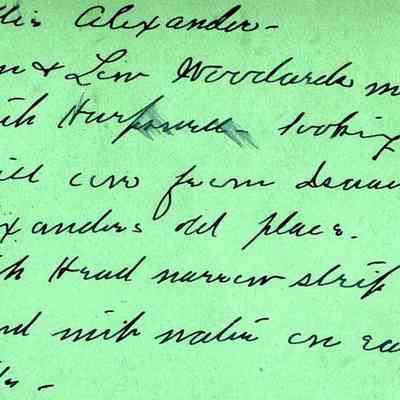 llis Alexander-
n & Lew Woodards m
th Harpswell - looking
ill cove from Isaac
xanders old place.
th Head narrow strip
nd with water on ea